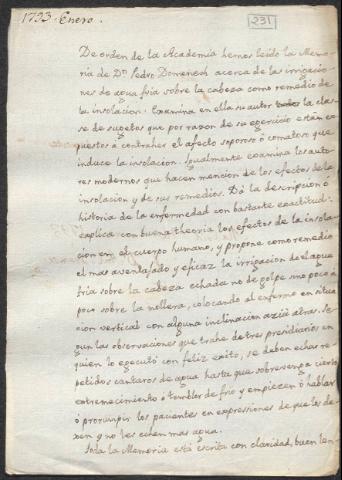 1793. Enero.
231
De orden de la Academia hemos leido la Memo-
ria de Dn. Pedro Domenech acerca de las irrigacio-
nes de agua fria sobre la cabeza como remedio de
la insolacion. Examina en ella su autor la cla-
se de sugetos que por razon de su egercicio están ex-
puestos a contraher el afecto soporoso ó comatoso que
induce la insolacion. Igualmente examina los auto-
res modernos que hacen mencion de los efectos de la
insolacion y de sus remedios. Dá la descripcion ó
historia de la enfermedad con bastante exactitud:
explica con buena theoria los efectos de la insola-
cion en el cuerpo humano, y propone como remedio
el mas aventajado y eficaz la irrigacion de el agua
fria sobre la cabeza echada no de golpe sino poco á
poco sobre la mollera, colocando al enfermo en situa-
cion vertical con alguna inclinacion azia atras. Se-
gun las observaciones que trahe de tres presidiarios en
quien lo egecutó con feliz exito, se deben echar re-
petidos cantaros de agua hasta que sobrevenga cierto
extremecimiento ó temblor de frio y empiecen á hablar
ó prorumpir los pacientes en expresiones de que los de-
xen y no les echen mas agua.
Toda la Memoria está escrita con claridad, buen len-